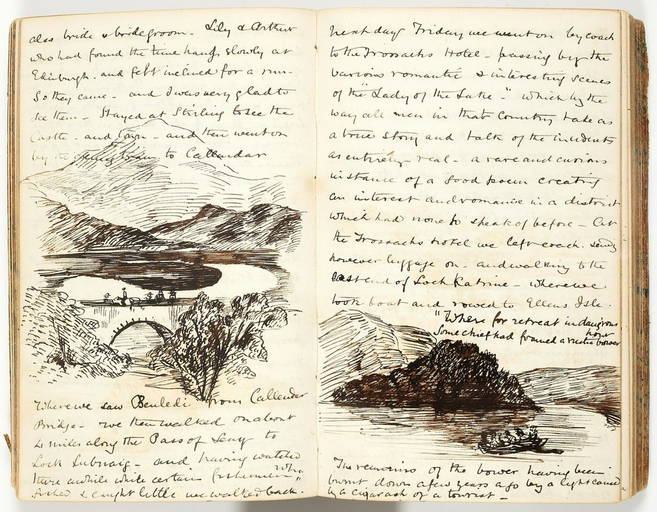 also bride & bridegroom. Lily & Arthur
who had found the time hang slowly at
Edinburgh. and felt inclined for a run.
So they came - and I was very glad to
see them - Stayed at Stirling to see the
Castle and - and then went on
by the to Callander
Where we saw Benledi from Callander
Bridge - we then walked on about
4 miles along the Pass of Leny to
Loch Lubnaig - and having watched
there awhile while certain fishermen who
fished & caught little we walked back.
next day Friday we went on by coach
to the Trossachs Hotel - passing by the
various romantic & interesting scenes
of the "Lady of the Lake -" which by the
way all men in that Country take as
a true story and talk of the incidents
as entirely real - a rare and curious
instance of a good poem creating
an interest and romance in a district
which had none to speak of before - At
the Trossachs Hotel we left coach. sending
however luggage on - and walking to the
east end of Loch Katrine - where we
took boat and rowed to Ellens Isle.
"Where for retreat in dangerous
hour
Some chief had framed a rustic bower
The remains of the bower having been
burnt down a few years ago by a light caused
by a cigar ash of a tourist -